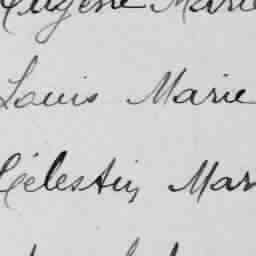 Eugène Marie
Louis Marie
Célestin Mar